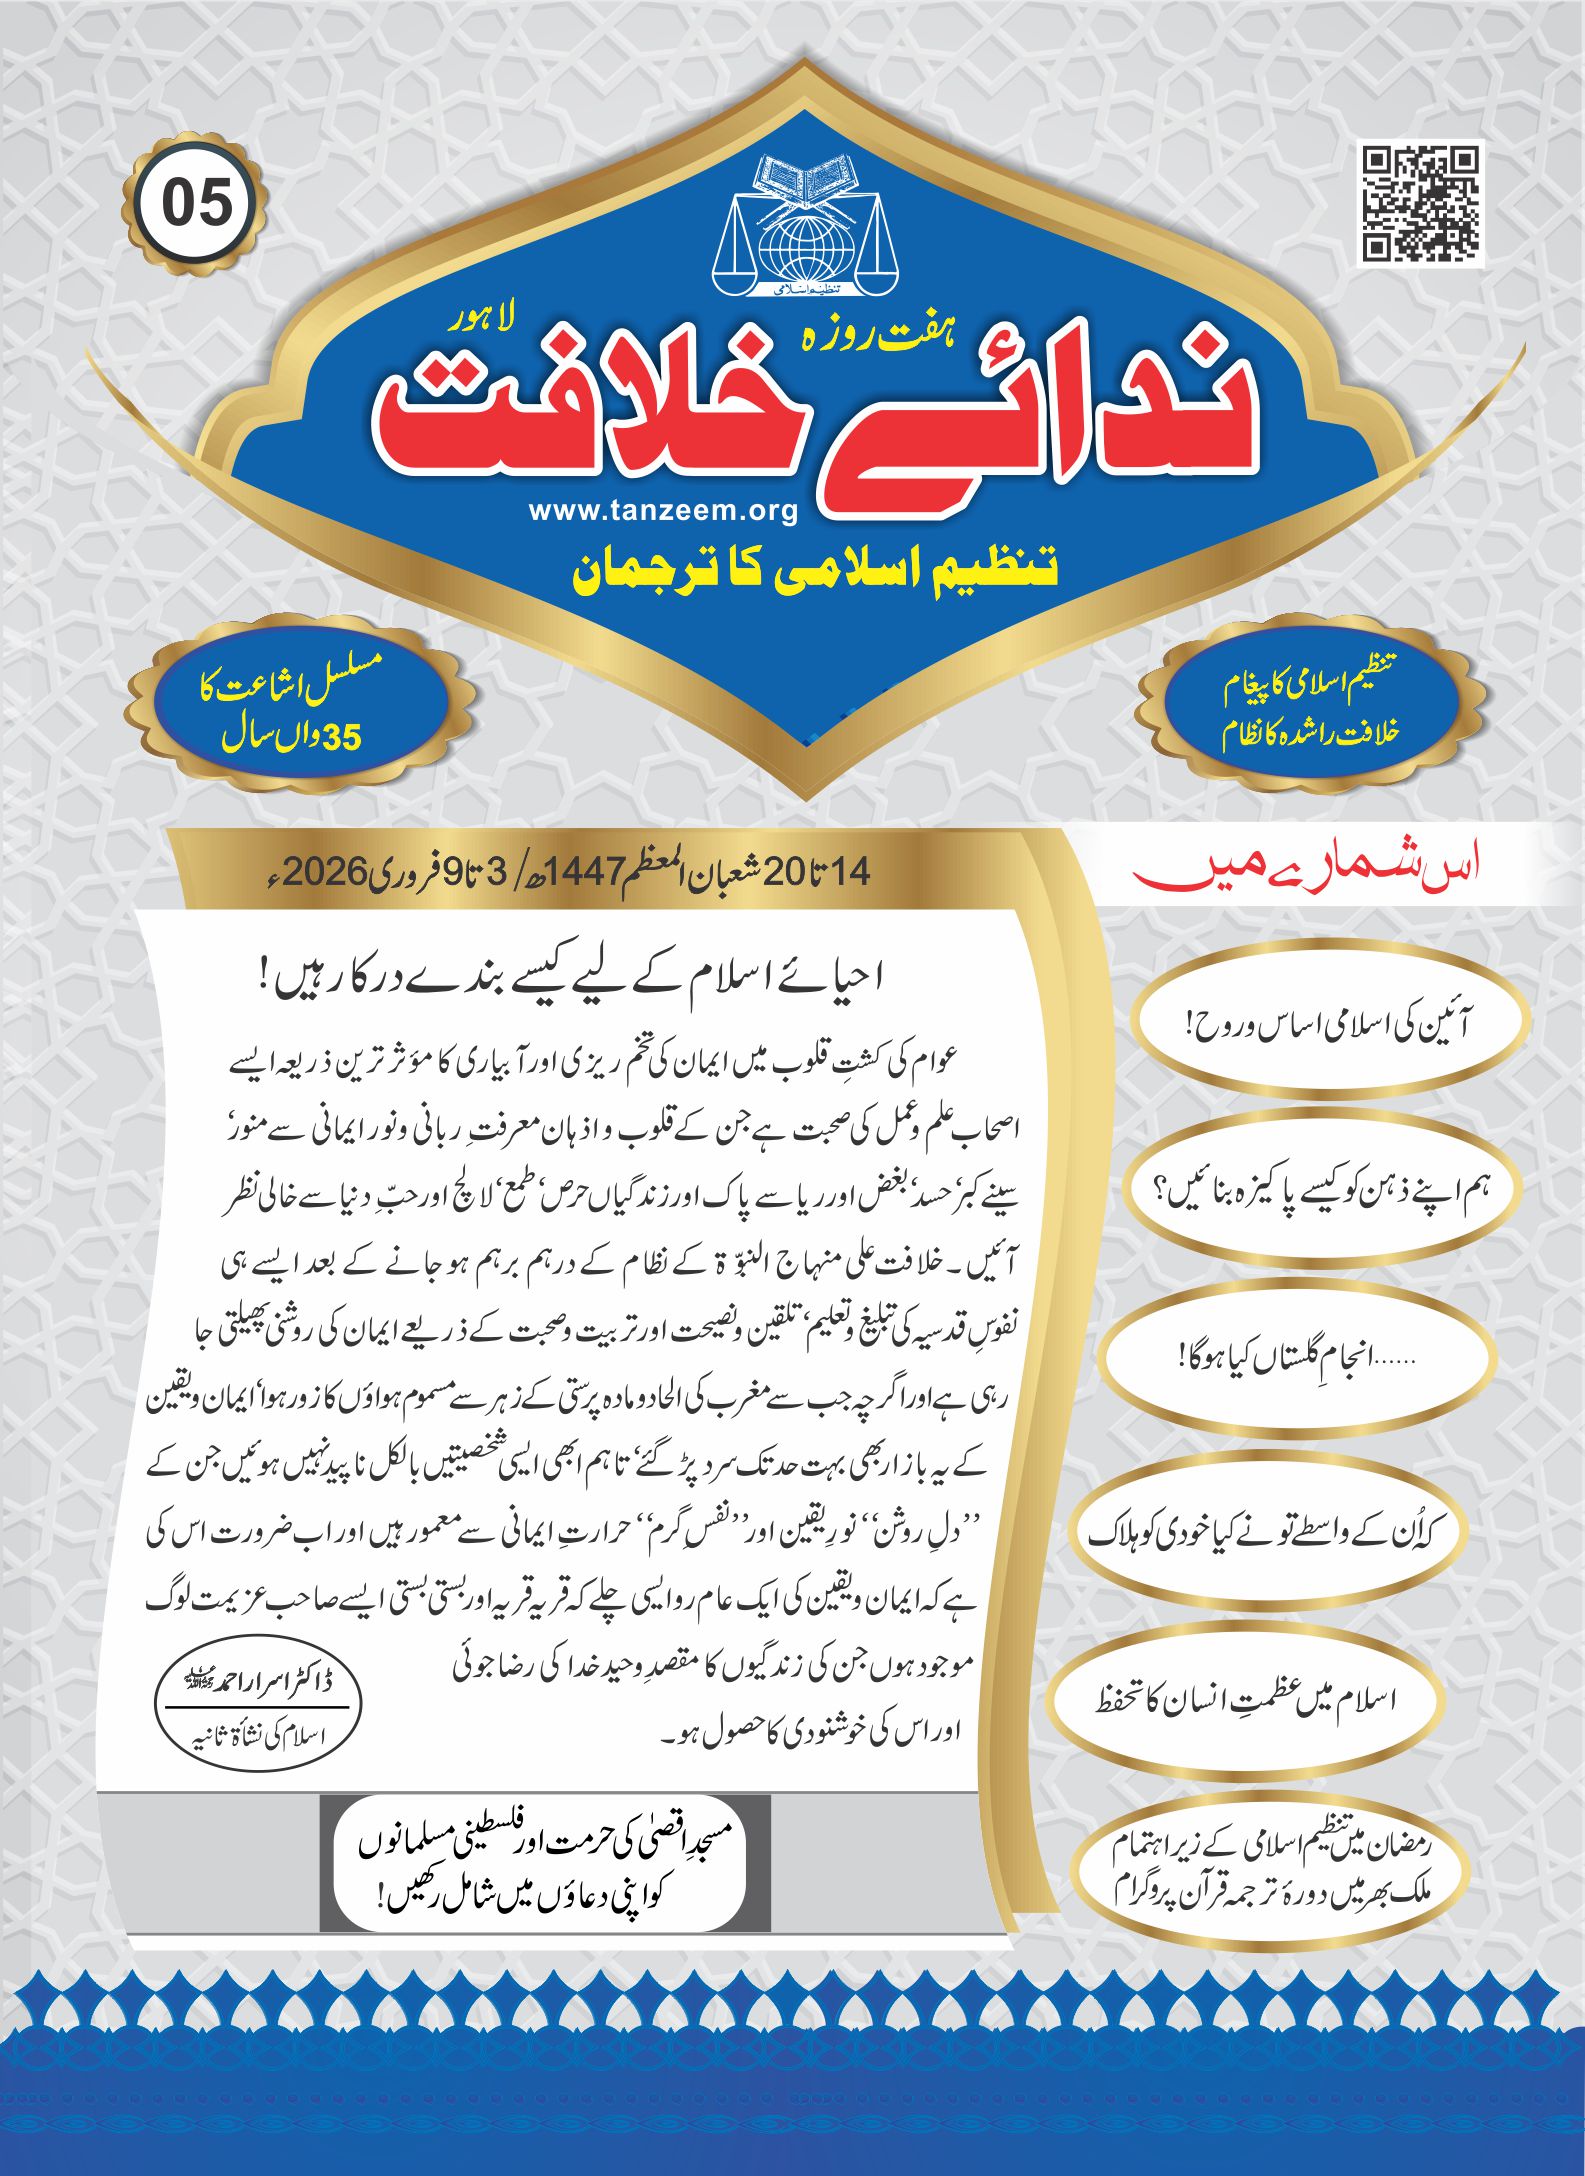 05
تنظیم اسلامی
ہفت روزہ
لاہور
ندائے خلافت
www.tanzeem.org
تنظیم اسلامی کا ترجمان
تنظیم اسلامی کا پیغام
خلافت راشدہ کا نظام
مسلسل اشاعت کا
35 واں سال
14 تا 20 شعبان المعظم 1447ھ / 3 تا 9 فروری 2026ء
احیائے اسلام کے لیے کیسے بندے درکار ہیں!
عوام کی کشتِ قلوب میں ایمان کی تخم ریزی اور آبیاری کا مؤثر ترین ذریعہ ایسے
اصحاب علم و عمل کی صحبت ہے جن کے قلوب و اذہان معرفتِ ربانی و نور ایمانی سے منور‘
سینے کبر‘ حسد‘ بغض اور ریا سے پاک اور زندگیاں حرص‘ طمع‘ لالچ اور حبِّ دنیا سے خالی نظر
آئیں۔ خلافت علی منہاج النبوّۃ کے نظام کے درہم برہم ہو جانے کے بعد ایسے ہی
نفوسِ قدسیہ کی تبلیغ و تعلیم‘ تلقین و نصیحت اور تربیت و صحبت کے ذریعے ایمان کی روشنی پھیلتی جا
رہی ہے اور اگرچہ جب سے مغرب کی الحاد و مادہ پرستی کے زہر سے مسموم ہواؤں کا زور ہوا‘ ایمان و یقین
کے یہ بازار بھی بہت حد تک سرد پڑ گئے‘ تاہم ابھی ایسی شخصیتیں بالکل ناپید نہیں ہوئیں جن کے
’’دلِ روشن‘‘ نورِ یقین اور ’’نفسِ گرم‘‘ حرارتِ ایمانی سے معمور ہیں اور اب ضرورت اس کی
ہے کہ ایمان و یقین کی ایک عام رو ایسی چلے کہ قریہ قریہ اور بستی بستی ایسے صاحب عزیمت لوگ
موجود ہوں جن کی زندگیوں کا مقصدِ وحید خدا کی رضا جوئی
اور اس کی خوشنودی کا حصول ہو۔
ڈاکٹر اسرار احمدؒ
اسلام کی نشأۃ ثانیہ
مسجدِ اقصیٰ کی حرمت اور فلسطینی مسلمانوں
کو اپنی دعاؤں میں شامل رکھیں!
اس شمارے میں
آئین کی اسلامی اساس و روح!
ہم اپنے ذہن کو کیسے پاکیزہ بنائیں؟
......انجامِ گلستاں کیا ہوگا!
کہ اُن کے واسطے تو نے کیا خودی کو ہلاک
اسلام میں عظمتِ انسان کا تحفظ
رمضان میں تنظیم اسلامی کے زیر اہتمام
ملک بھر میں دورۂ ترجمہ قرآن پروگرام